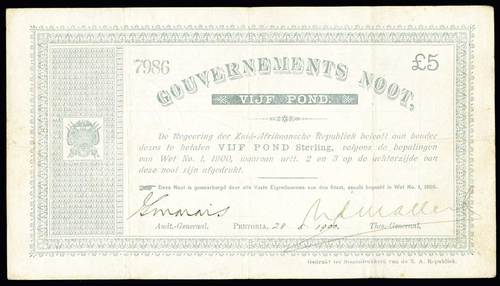 7986
£5
GOUVERNEMENTS NOOT,
VIJF POND.
De Regeering der Zuid-Afrikaansche Republiek belooft aan houder
dezes te betalen VIJF POND Sterling, volgens de bepalingen
van Wet No. 1, 1900, waarvan artt. 2 en 3 op de achterzijde van
deze noot zijn afgedrukt.
Deze Noot is gewaarborgd door alle Vaste Eigendommen van den Staat, zooals bepaald in Wet No. 1, 1900.
Audt.-Generaal.
PRETORIA, 28 5 1900.
Thes.-Generaal.
Gedrukt ter Staatsdrukkerij van de Z. A. Republiek.